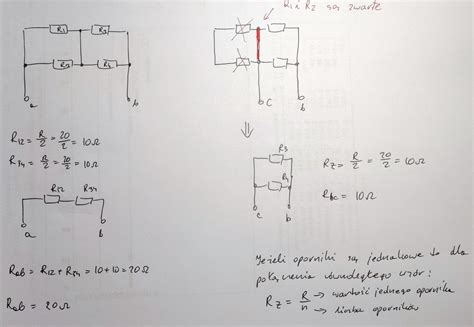 R1 i R2 są zwarte
R1
R3
R2
R4
a
b
c
b
R12 = R/2 = 20/2 = 10Ω
R34 = R/2 = 20/2 = 10Ω
R12
R34
a
b
Rab = R12 + R34 = 10 + 10 = 20Ω
Rab = 20Ω
R3
R4
c
b
Rz = R/2 = 20/2 = 10Ω
Rbc = 10Ω
Jeżeli oporniki są jednakowe to dla
połączenia równoległego wzór:
Rz = R/n → wartość jednego opornika
→ liczba oporników